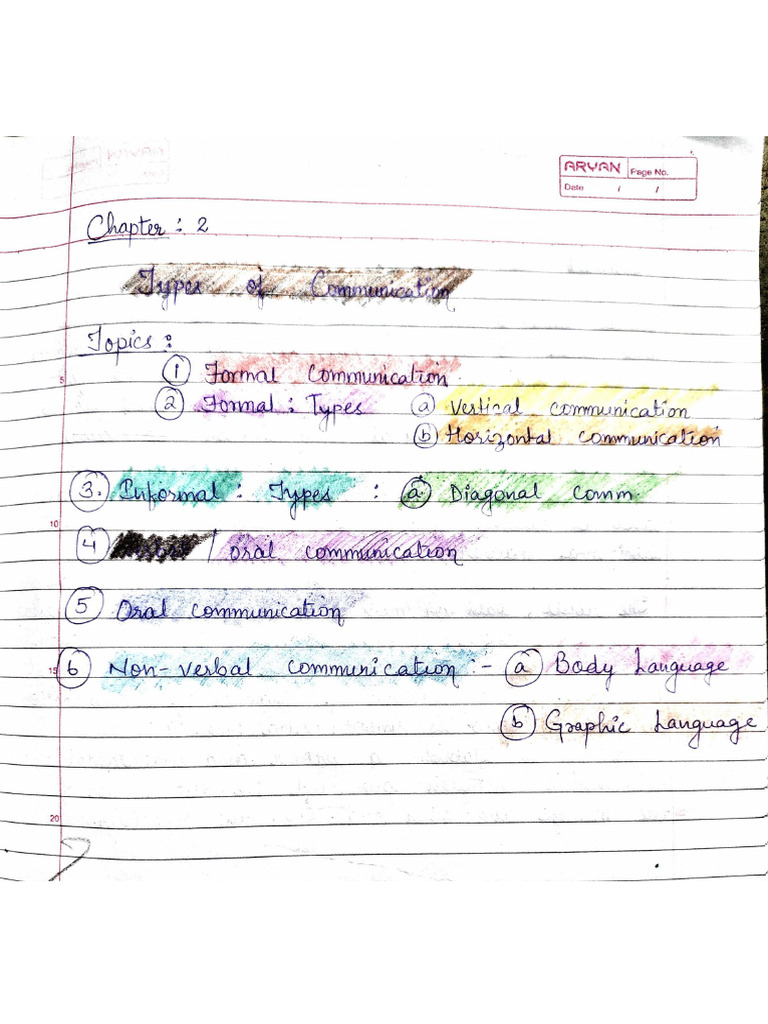 ARYAN Page No.
Date / /
Chapter : 2
Types of Communication
Topics :
1 Formal Communication
2 Formal : Types a Vertical communication
b Horizontal communication
5
3. Informal : Types : a. Diagonal Comm.
10
4 / oral communication
5 Oral communication
6 Non-verbal communication :- a Body Language
15
b Graphic Language
20